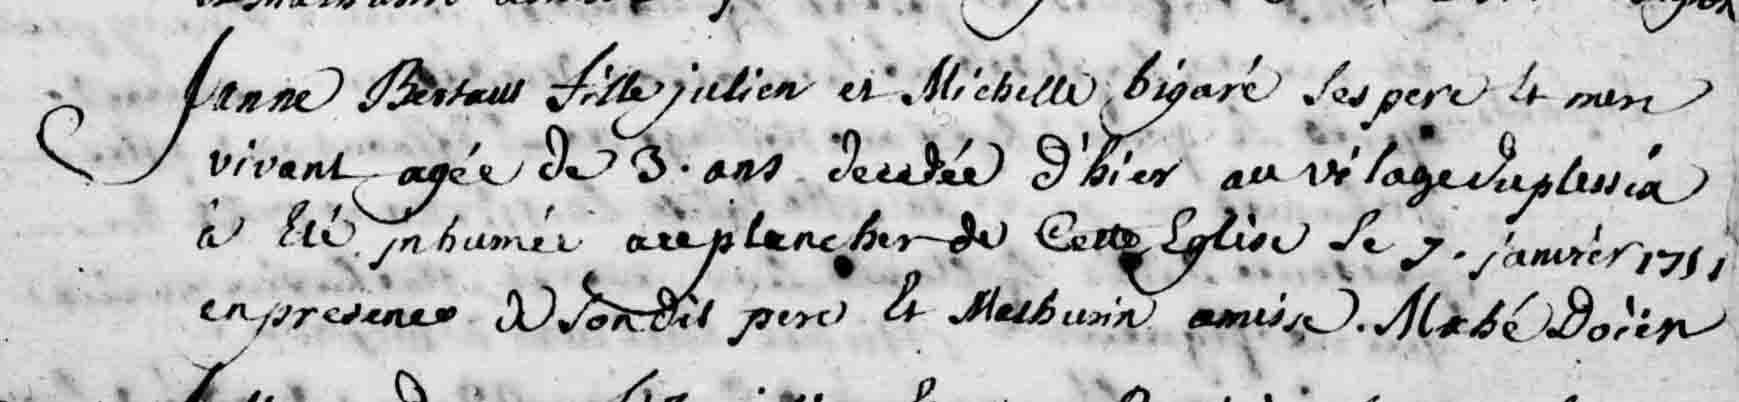 Janne Bertaus fille julien et Michelle bigaré ses pere et mere
vivant agée de 3. ans decedée d'hier au vilage du plessix
a eté jnhumée au plancher de Cette Eglise le 7. janvier 1711
en presence de son dit pere et Mathurin amisse. Mahé Doien